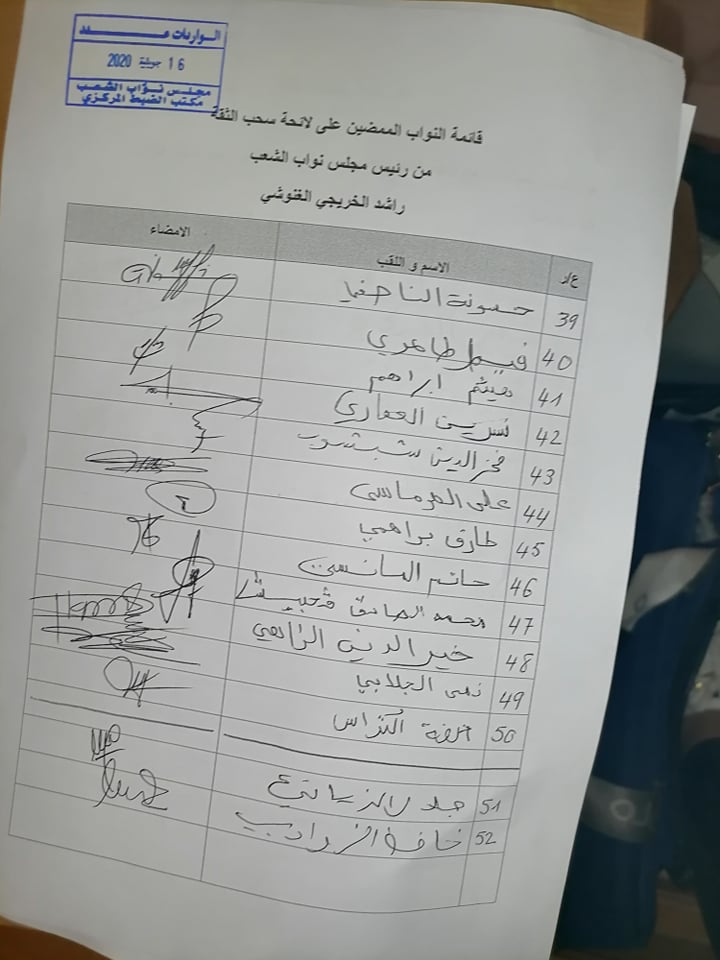 الـواردات عـــدد
16 جويلية 2020
مجلس نواب الشعب
مكتب الضبط المركزي
قائمة النواب الممضين على لائحة سحب الثقة
من رئيس مجلس نواب الشعب
راشد الخريجي الغنوشي
ع/ر الاسم و اللقب الامضاء
39 حسونة الناصفي
40 فيصل طاهري
41 هيثم ابراهم
42 نسرين العماري
43 فخر الدين شبشوب
44 علي الهرماسي
45 طارق براهمي
46 حاتم المانسي
47 محمد الصادق قحبيش
48 خير الدين الزاهي
49 نهى الجلابي
50 ألفة التراس
51 جلال الزياتي
52 حافظ الزواري